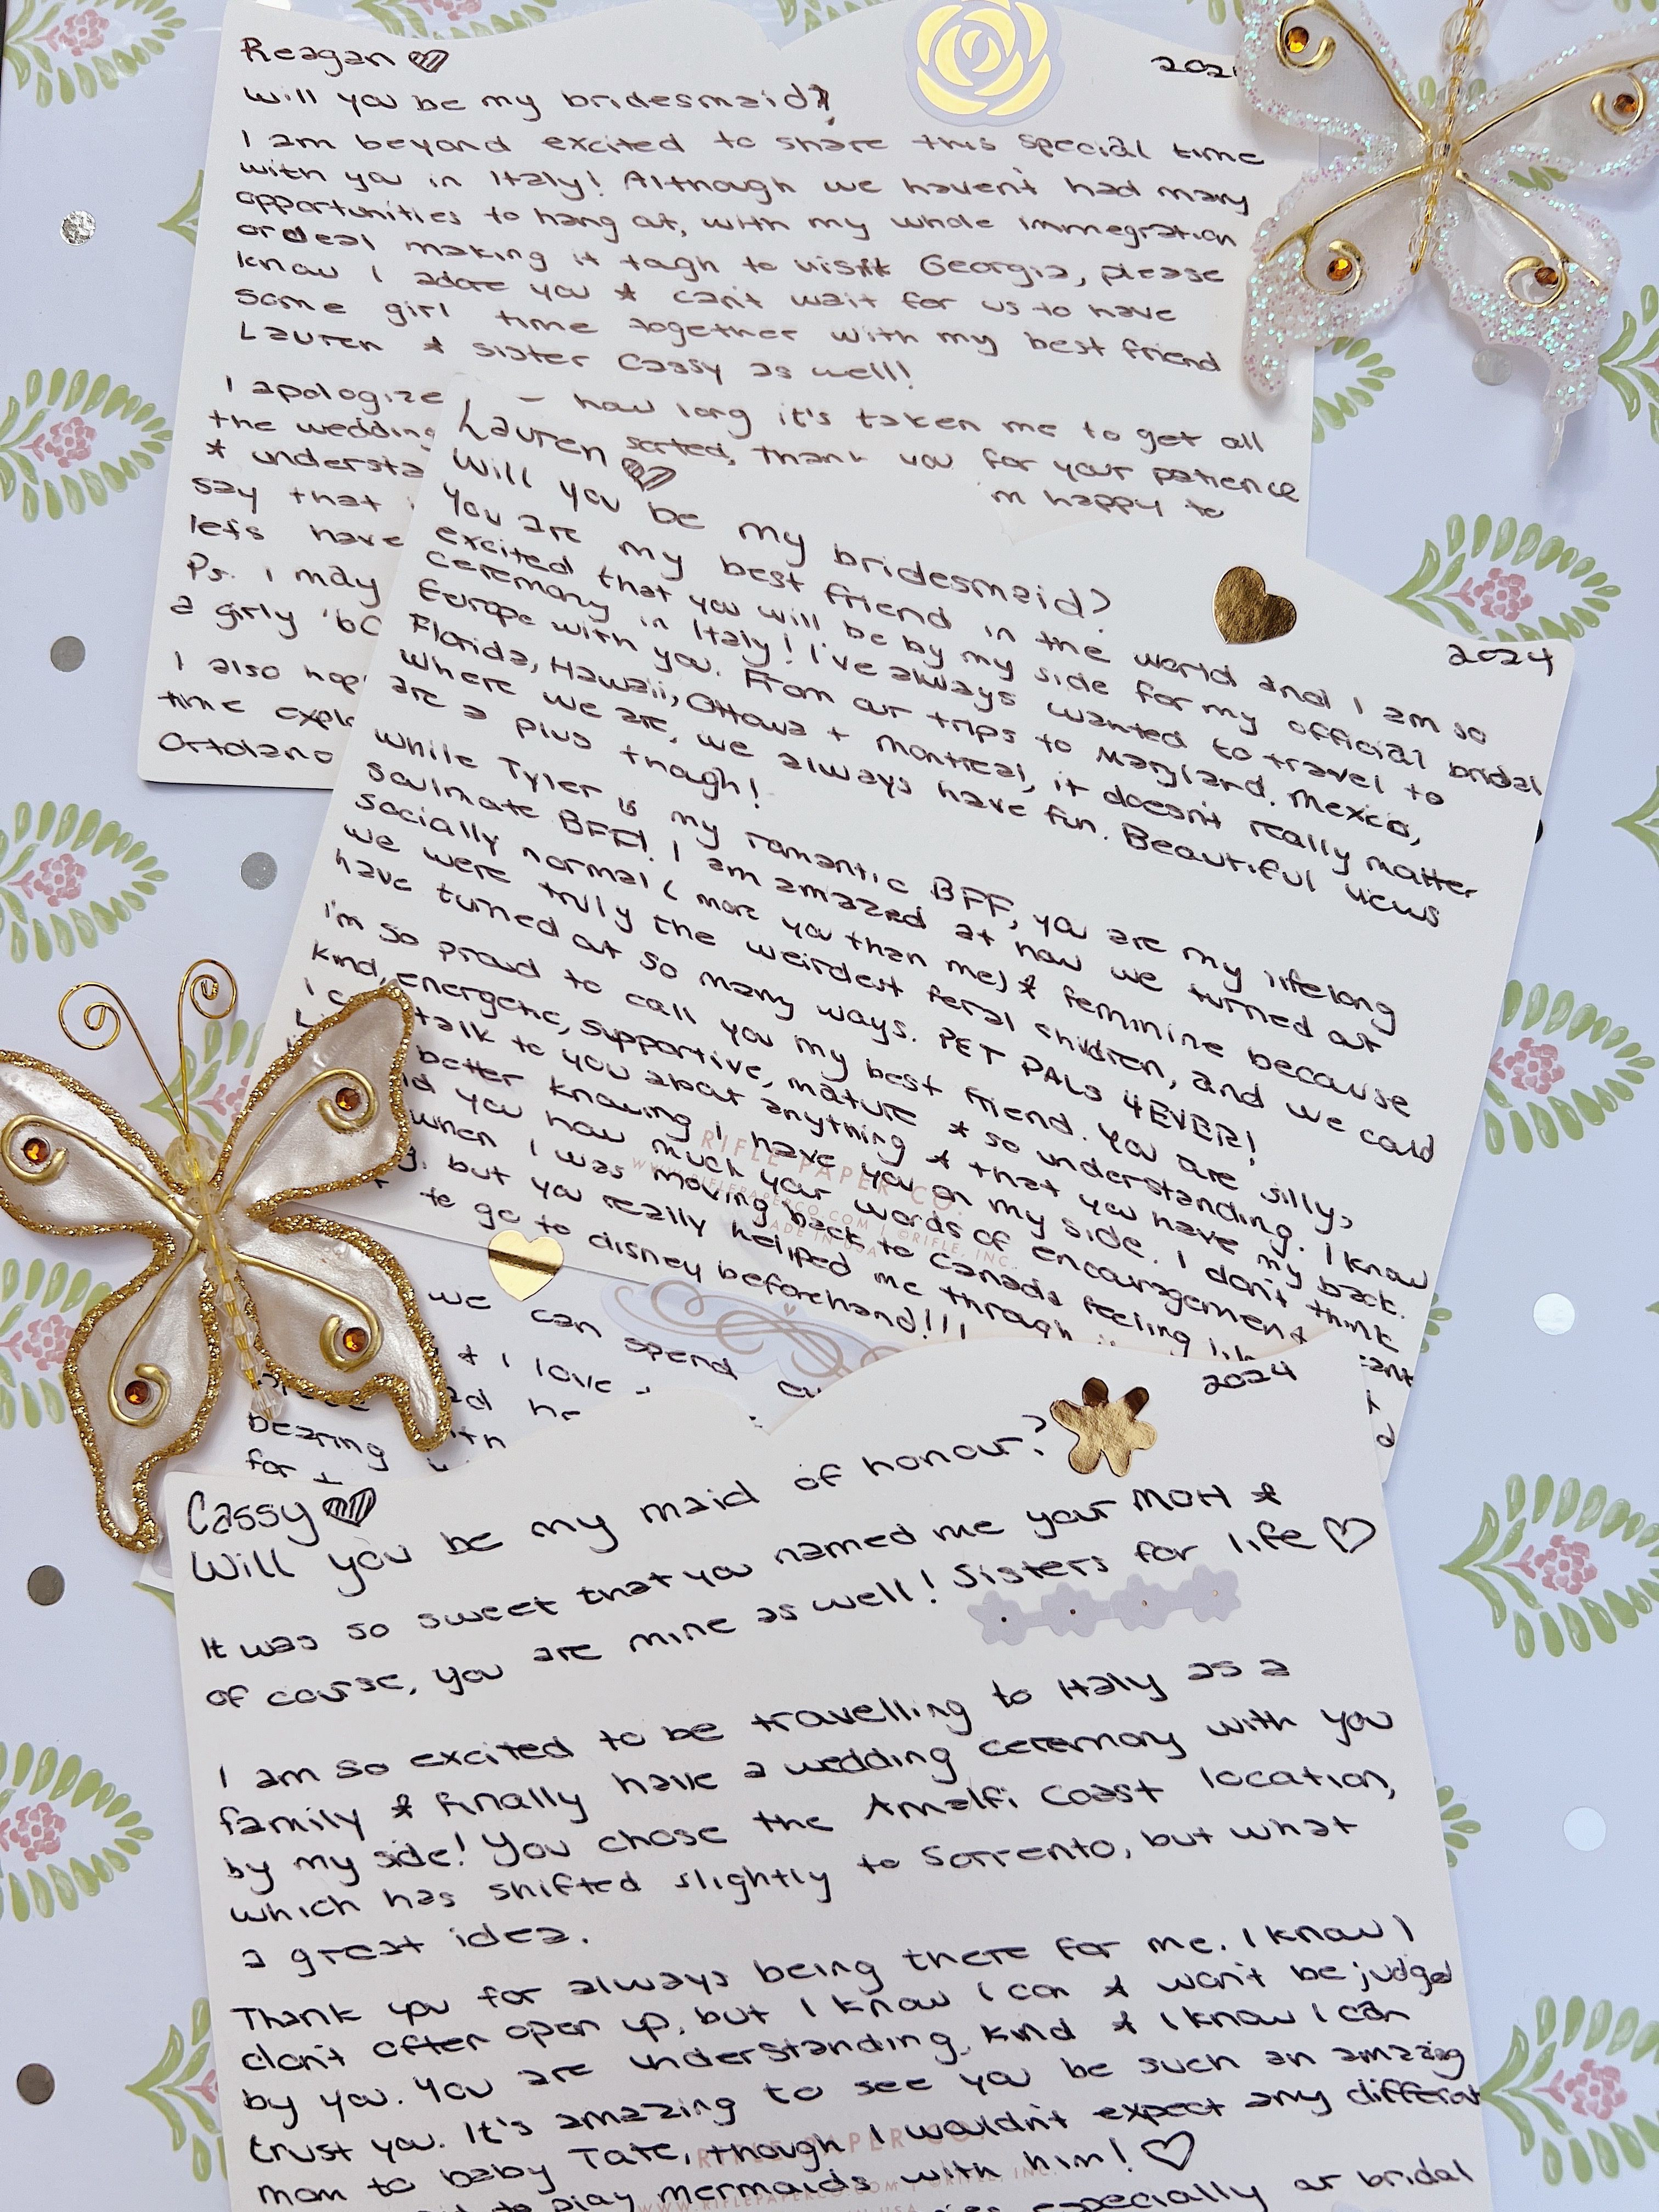 Reagan
202
Will you be my bridesmaid?
I am beyond excited to share this special time
with you in Italy! Although we haven't had many
opportunities to hang out, with my whole immegration
ordeal making it tough to visit Georgia, please
know I adore you & can't wait for us to have
some girl time together with my best friend
Lauren & sister Cassy as well!
I apologize how long it's taken me to get all
the wedding sorted, thank you for your patience
& understa m happy to
say that
lets have
Ps. I may
a girly
I also hop
time expl
Ortolano
Lauren
2024
Will you be my bridesmaid?
You are my best friend in the world and I am so
excited that you will be by my side for my official bridal
ceremony in Italy! I've always wanted to travel to
Europe with you. From our trips to Maryland, Mexico,
Florida, Hawaii, Ottawa + Montreal, it doesn't really matter
where we are, we always have fun. Beautiful views
are a plus though!
While Tyler is my romantic BFF, you are my lifelong
soulmate BFF! I am amazed at how we turned out
socially normal (more you than me) & feminine because
we were truly the weirdest feral children, and we could
have turned out so many ways. PET PALS 4EVER!
I'm so proud to call you my best friend. You are silly,
kind, energetic, supportive, mature & so understanding. I know
I c talk to you about anything & that you have my back.
better knowing I have you on my side. I don't think
you how much your words of encouragement
when I was moving back to Canada feeling
but you really helped me through
to go to disney beforehand!!!
RIFLE PAPER CO.
WWW.RIFLEPAPERCO.COM | ©RIFLE, INC.
MADE IN USA
we can spend
& I love
bearing
for
Cassy
2024
Will you be my maid of honour?
It was so sweet that you named me your MOH &
of course, you are mine as well! Sisters for life
I am so excited to be travelling to Italy as a
family & finally have a wedding ceremony with you
by my side! You chose the Amalfi Coast location,
which has shifted slightly to Sorrento, but what
a great idea.
Thank you for always being there for me. I know I
don't often open up, but I know I can & won't be judged
by you. You are understanding, kind & I know I can
trust you. It's amazing to see you be such an amazing
mom to baby Tate, though I wouldn't expect any different
to play mermaids with him!
especially our bridal